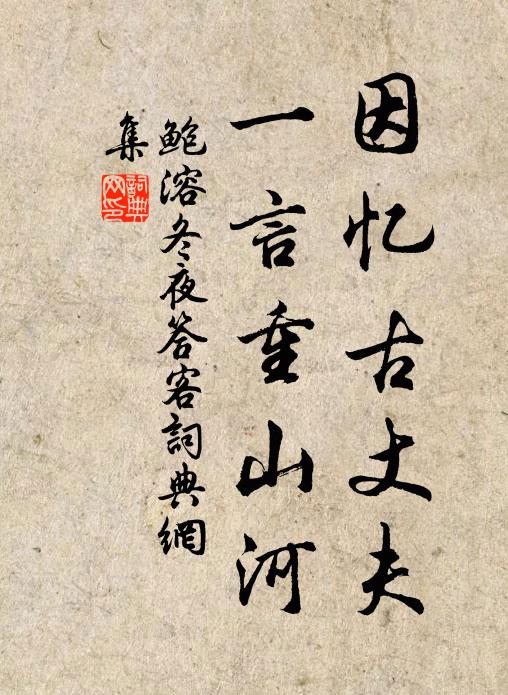 因忆古丈夫
一言重山河
鲍溶冬夜答客詞典網
集
詞典
网印